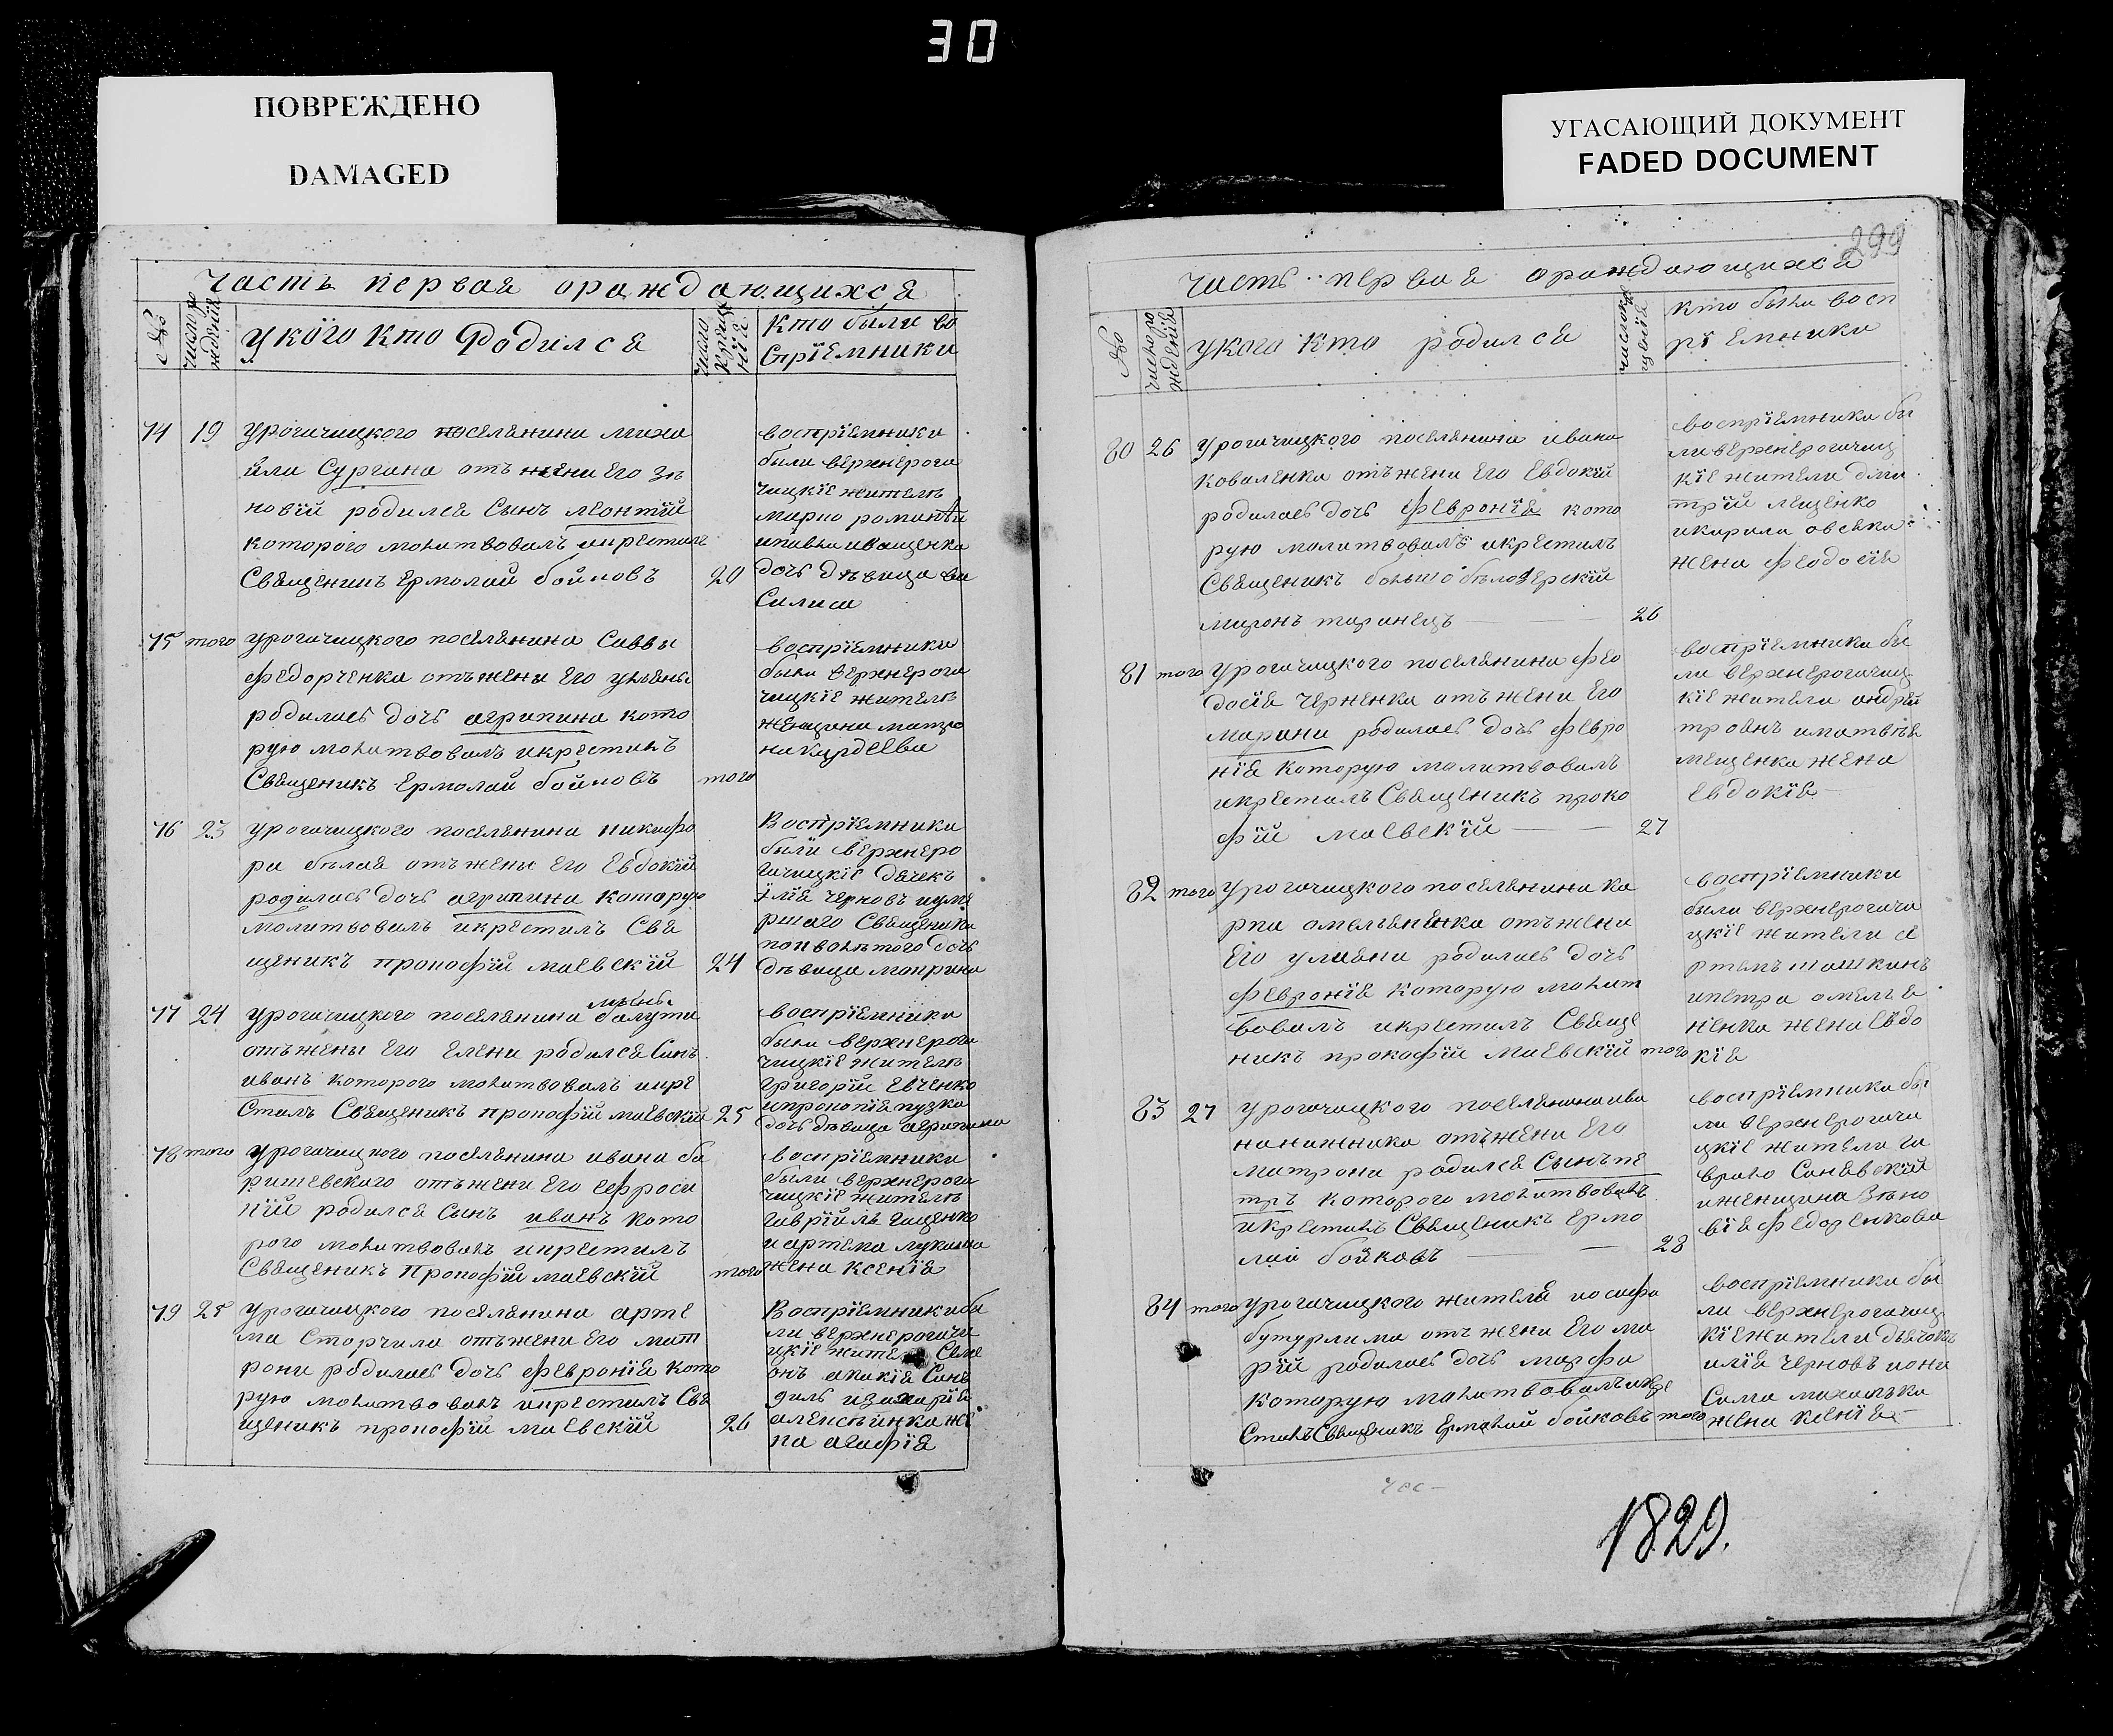 30
ПОВРЕЖДЕНО
DAMAGED
УГАСАЮЩИЙ ДОКУМЕНТ
FADED DOCUMENT
часть первая ораждающихся
№
число ро
ждения
укого кто родился
число
креще
нїя
кто были во
спрїемники
74 19 урогачицкого поселянина миха
йла Сургана отъ жены Его Зѣ
новїй родился Сынъ леонтїй
которого молитвовалъ икрестилъ
Священикъ Ермолай бойковъ 20
воспрїемники
были верхнерога
чицкїе жителѣ
марко
ипавла иващенка
дочь дѣвица ва
Силиса
75 того урогачицкого поселянина Саввы
федорченка отъ жены Его ульяны
родилась дочь агрипина кото
рую молитвовалъ икрестилъ
Священикъ Ермолай бойковъ того
воспрїемники
были верхнерога
чицкїе жителѣ
женщина матро
на
76 23 урогачицкого поселянина никифо
ра бѣлая отъ жены Его Евдокїй
родилась дочь агрипина которую
молитвовалъ икрестилъ Свя
щеникъ прокофїй маевскїй 24
Воспрїемники
были верхнеро
гачицкїе дячекъ
ілїя черновъ иуме
ршаго Священика
дочь
дѣвица
77 24 урогачицкого поселянина балути
отъ жены Его Елены родился Синъ
иванъ которого молитвовалъ икре
стилъ Священикъ прокофїй маевскїй 25
воспрїемники
были верхнерога
чицкїе жителѣ
григорїй Евченко
ипрокопїя пузка
дочь дѣвица агрипина
78 того урогачицкого поселянина ивана ба
ришевского отъ жены Его Ефроси
нїй родился Сынъ иванъ кото
рого молитвовалъ икрестилъ
Священикъ Прокофїй маевскїй того
воспрїемники
были верхнерога
чицкїе жителѣ
гаврїилъ гащенко
иартема лукаша
жена Ксенїя
79 25 урогачицкого поселянина арте
ма Сторчила отъ жены Его мат
роны родилась дочь февронїя кото
рую молитвовалъ икрестилъ Свя
щеникъ прокофїй маевскїй 26
Воспрїемники бы
ли верхнерогачи
цкїе жите Семе
онъ
изахарїя
же
на агафїя
299
часть первая ораждающихся
№
число ро
ждения
укого кто родился
число кре
щенїя
кто были восп
рїемники
80 26 урогачицкого поселянина ивана
коваленка отъ жены Его Евдокїй
родилась дочь февронїя кото
рую молитвовалъ икрестилъ
Священикъ большобѣлозерскїй
миронъ таранецъ 26
воспрїемники бы
ли верхнерогачиц
кїе жители дми
трїй лещенко
икирила овсяка
жена феодосїя
81 того урогачицкого поселянина фео
досїя Черненка отъ жены Его
марины родилась дочь февро
нїя которую молитвовалъ
икрестилъ Священикъ проко
фїй маевскїй 27
воспрїемники бы
ли верхнерогачиц
кїе жители андрей
троянъ иматвѣя
мещенка жена
Евдокїя
82 того урогачицкого поселянина ка
рпа омельяненка отъ жены
Его уляяны родилась дочь
февронїя которую молит
вовалъ икрестилъ Свяще
никъ прокофїй маевскїй того
воспрїемники
были верхнерогачи
цкїе жители а
ртемъ шашкинъ
ипетра омелья
ненка жена Евдо
кїя
83 27 урогачицкого поселянина ива
на отъ жены Его
матрони родился Сынъ пе
тръ которого молитвовалъ
икрестилъ Священикъ Ермо
лай бойковъ 28
воспрїемники бы
ли верхнерогачи
цкїе жители га
врило Саневскїй
иженщина Зѣно
вїя федоренкова
84 того урогачицкого жителя иосифа
бутурлима отъ жены Его ма
рїй родилась дочь марфа
которую молитвовалъ икре
стилъ Священикъ Ермолай бойковъ того
воспрїемники бы
ли верхнерогачиц
кїе жители дьячокъ
илїя черновъ иони
сима
жена Ксенїя
1829.